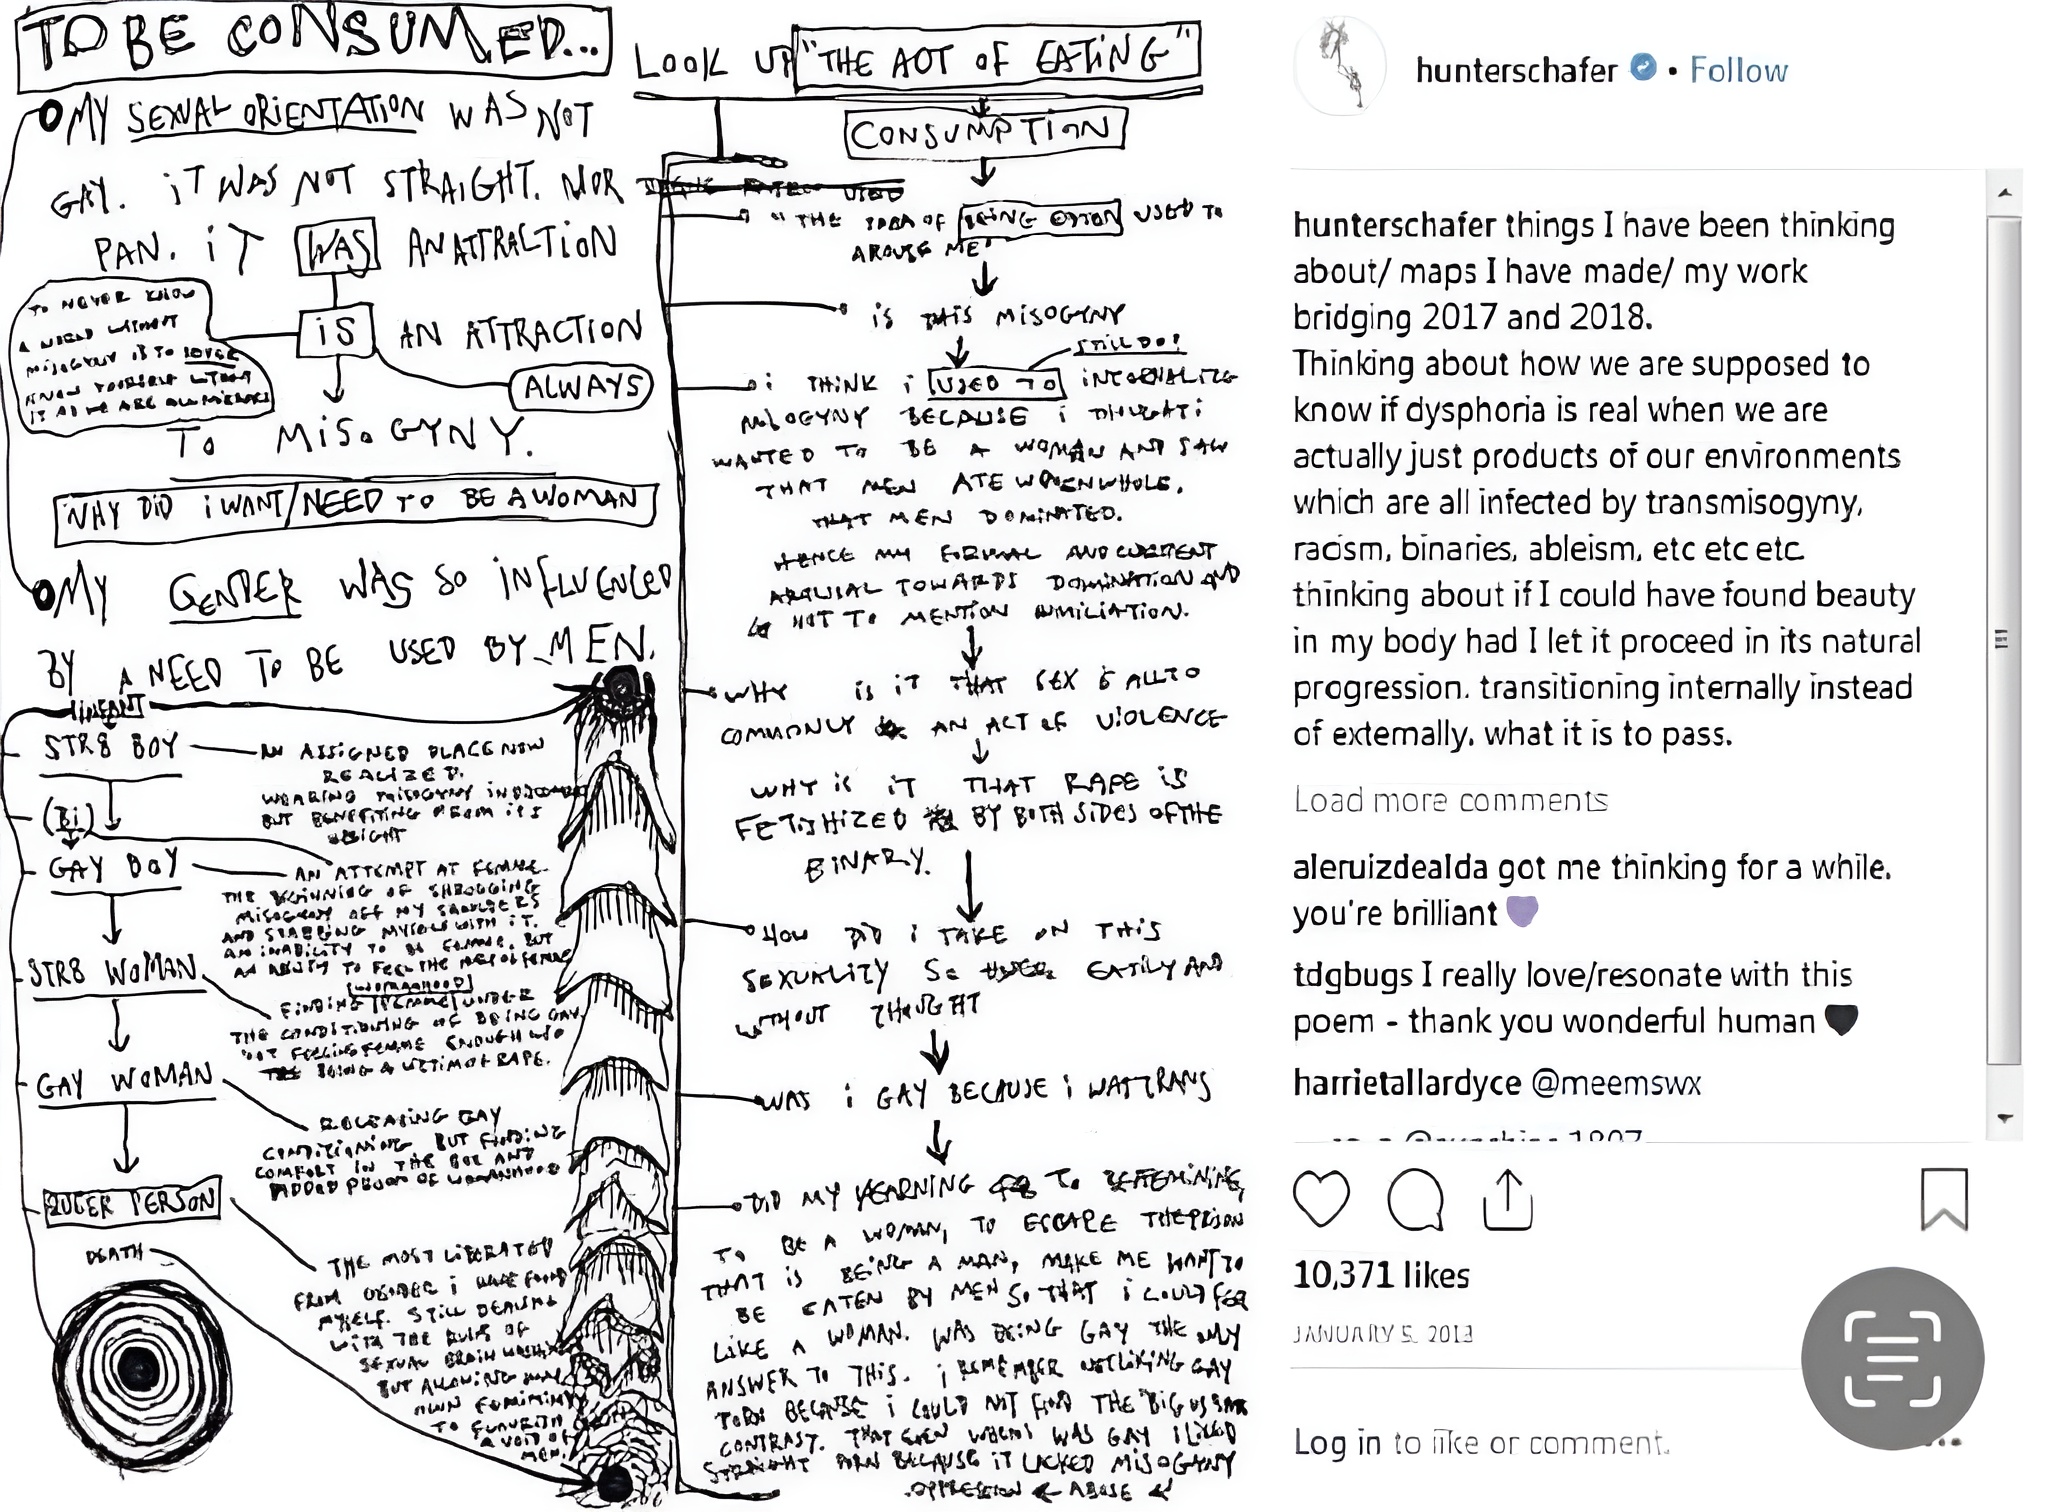 TO BE CONSUMED...
MY SEXUAL ORIENTATION WAS NOT
GAY. iT WAS NOT STRAIGHT. NOR
PAN. iT WAS AN ATTRACTION
iS AN ATTRACTION
ALWAYS
TO MiSOGYNY.
TO NEVER KNOW
A WORLD WITHOUT
MISOGYNY IS TO NEVER
KNOW YOURSELF WITHOUT
IT AS WE ARE ALL MIRRORS
WHY DiD i WANT/NEED TO BE A WOMAN
MY GENDER WAS SO INFLUENCED
BY A NEED TO BE USED BY MEN.
INFANT
STR8 BOY
AN ASSIGNED PLACE NOW
REALIZED.
WEARING MISOGYNY
BUT BENEFITING FROM ITS
WEIGHT
(Bi)
GAY BOY
AN ATTEMPT AT FEMME.
THE BEGINNING OF SHRUGGING
MISOGYNY OFF MY SHOULDERS
AND STABBING MYSELF WITH IT.
AN INABILITY TO BE FEMME. BUT
AN ABILITY TO FEEL THE OF FEMME
STR8 WOMAN
[WOMANHOOD]
FINDING [FEMME] UNDER
THE CONDITIONING OF BEING GAY.
NOT FEELING FEMME ENOUGH W/O
BEING A VICTIM OF RAPE.
GAY WOMAN
RELEASING GAY
CONDITIONING BUT FINDING
COMFORT IN THE AND
ADDED PROOF OF WOMANHOOD
QUEER PERSON
THE MOST LIBERATED
FROM GENDER i HAVE FOUND
MYSELF. STILL DEALING
WITH THE RULES OF
SEXUAL BRAIN WASHING
BUT ALLOWING MY
OWN FEMININITY
TO FLOURISH
A VOID OF
MEN.
DEATH
LOOK UP "THE ACT OF EATiNG"
CONSUMPTION
"THE IDEA OF BEiNG EATEN USED TO
AROUSE ME"
iS THIS MISOGYNY
STILL DO!
i THiNK i USED TO INTERNALIZE
MISOGYNY BECAUSE i THOUGHT i
WANTED TO BE A WOMAN AND SAW
THAT MEN ATE WOMEN WHOLE.
THAT MEN DOMINATED.
HENCE MY FORMAL AND CURRENT
AROUSAL TOWARDS DOMINATION AND
NOT TO MENTION HUMILIATION.
WHY iS iT THAT SEX iS ALL TO
COMMONLY AN ACT OF VIOLENCE
WHY iS iT THAT RAPE iS
FETISHIZED BY BOTH SIDES OF THE
BINARY.
HOW DiD i TAKE ON THIS
SEXUALITY SO EASILY AND
WITHOUT THOUGHT
WAS i GAY BECAUSE i WAS TRANS
DID MY YEARNING TO BE FEMININE,
TO BE A WOMAN, TO ESCAPE THE PRISON
THAT iS BEiNG A MAN, MAKE ME WANT TO
BE EATEN BY MEN SO THAT i COULD FEEL
LiKE A WOMAN. WAS BEING GAY THE ONLY
ANSWER TO THIS. i REMEMBER NOT LIKING GAY
PORN BECAUSE i COULD NOT FIND THE BIG VS SMALL
CONTRAST. THAT EVEN WHEN i WAS GAY i LIKED
STRAIGHT PORN BECAUSE iT LACKED MISOGYNY
OPPRESSION ← ABUSE ↲
hunterschafer • Follow
hunterschafer things I have been thinking
about/ maps I have made/ my work
bridging 2017 and 2018.
Thinking about how we are supposed to
know if dysphoria is real when we are
actually just products of our environments
which are all infected by transmisogyny,
racism, binaries, ableism, etc etc etc.
thinking about if I could have found beauty
in my body had I let it proceed in its natural
progression. transitioning internally instead
of externally. what it is to pass.
Load more comments
aleruizdealda got me thinking for a while.
you're brilliant 💜
tdgbugs I really love/resonate with this
poem - thank you wonderful human 🖤
harrietallardyce @meemswx
10,371 likes
JANUARY 5, 2018
Log in to like or comment.